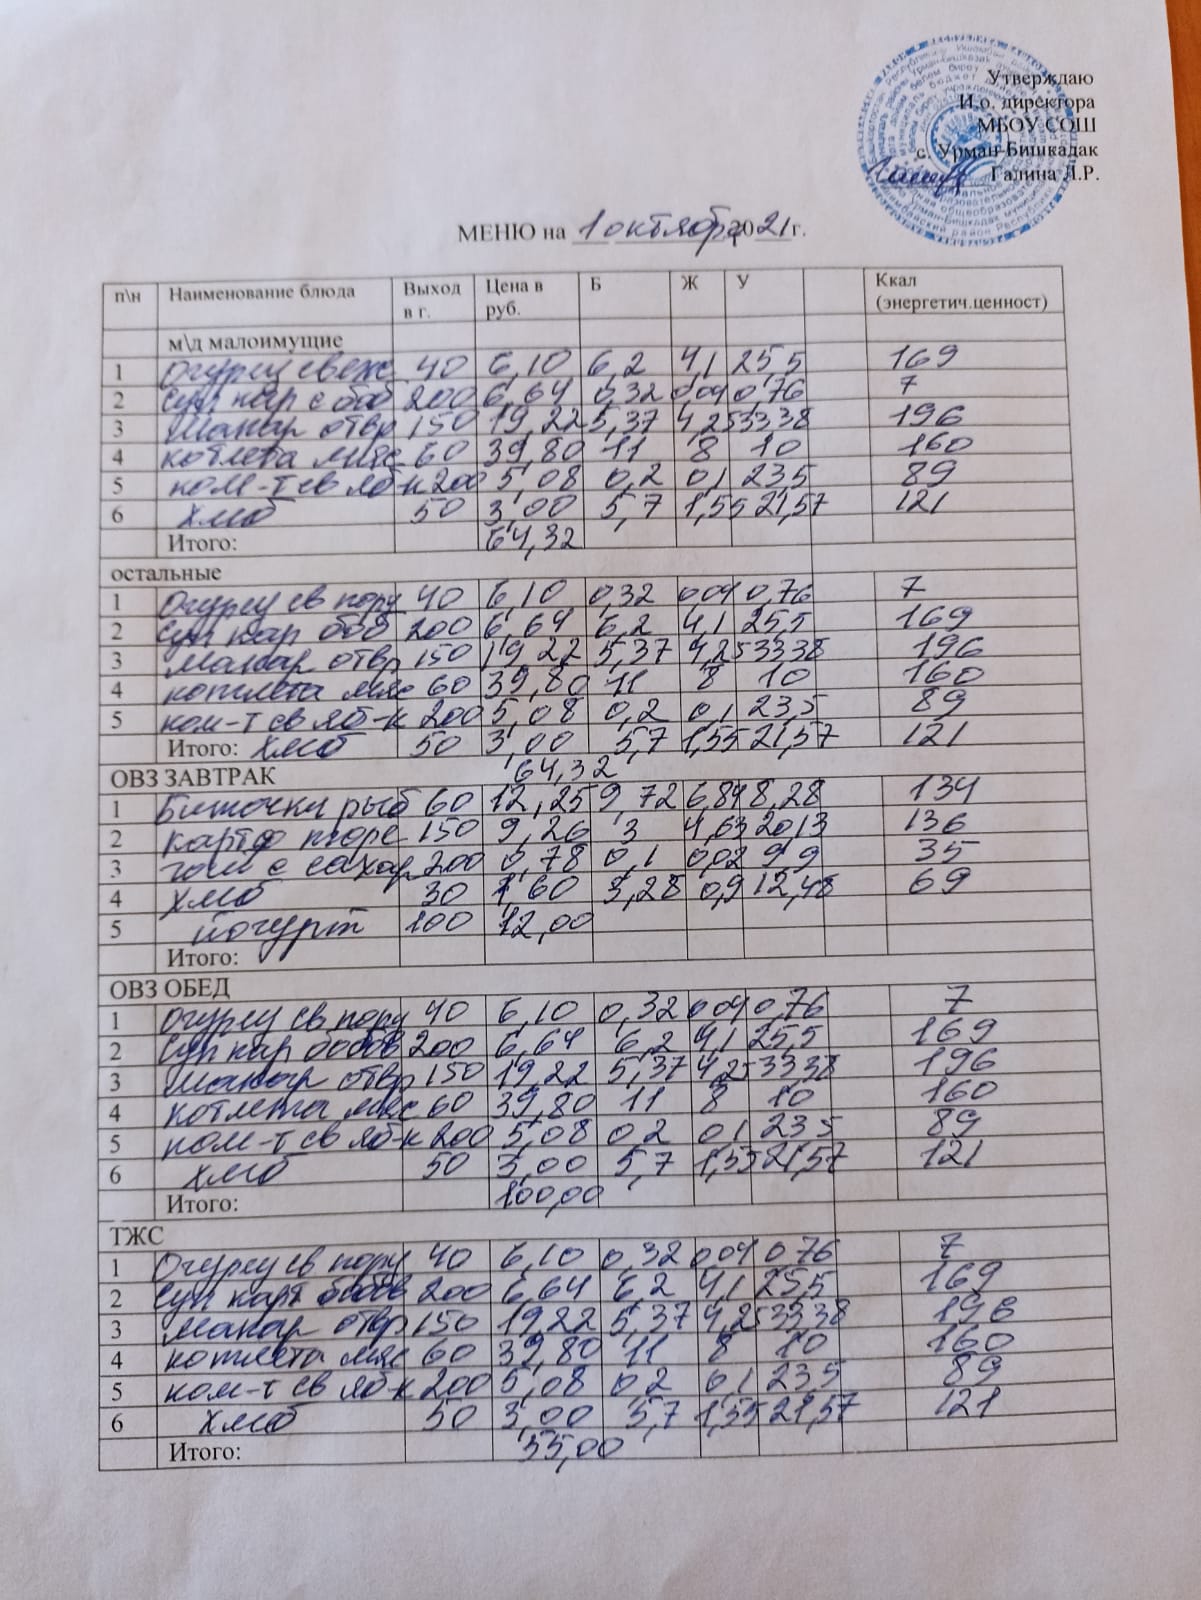 Утверждаю
И.о. директора
МБОУ СОШ
с. Урман-Бишкадак
Галина Л.Р.
МЕНЮ на 1 октября 2021 г.
п\н Наименование блюда Выход в г. Цена в руб. Б Ж У Ккал (энергетич.ценност)
м\д малоимущие
1 Огурец свеж 40 6,10 6,2 4,1 25,5 169
2 Суп кар с боб 200 6,64 0,32 0,04 0,76 7
3 Макар отвр 150 19,22 5,37 4,25 33,38 196
4 котлета мяс 60 39,80 11 8 10 160
5 ком-т св яб-к 200 5,08 0,2 0,1 23,5 89
6 хлеб 50 3,00 5,7 1,55 21,57 121
Итого: 64,32
остальные
1 Огурец св пору 40 6,10 0,32 0,04 0,76 7
2 Суп кар боб 200 6,64 6,2 4,1 25,5 169
3 макар отвр 150 19,22 5,37 4,25 33,38 196
4 котлета мяс 60 39,80 11 8 10 160
5 ком-т св яб-к 200 5,08 0,2 0,1 23,5 89
Итого: хлеб 50 3,00 5,7 1,55 21,57 121
ОВЗ ЗАВТРАК 64,32
1 Биточки рыб 60 12,25 9,72 6,84 8,28 134
2 картф пюре 150 9,26 3 4,63 20,13 136
3 чай с сахар 200 0,78 0,1 0,02 9,9 35
4 хлеб 30 1,60 3,28 0,9 12,48 69
5 йогурт 100 12,00
Итого:
ОВЗ ОБЕД
1 Огурец св пору 40 6,10 0,32 0,04 0,76 7
2 Суп кар бобов 200 6,64 6,2 4,1 25,5 169
3 Макар отвр 150 19,22 5,37 4,25 33,38 196
4 котлета мяс 60 39,80 11 8 10 160
5 ком-т св яб-к 200 5,08 0,2 0,1 23,5 89
6 хлеб 50 3,00 5,7 1,55 21,57 121
Итого: 100,00
ТЖС
1 Огурец св пору 40 6,10 0,32 0,04 0,76 7
2 Суп карт бобов 200 6,64 6,2 4,1 25,5 169
3 макар отвр 150 19,22 5,37 4,25 33,38 196
4 котлета мяс 60 39,80 11 8 10 160
5 ком-т св яб-к 200 5,08 0,2 0,1 23,5 89
6 хлеб 50 3,00 5,7 1,55 21,57 121
Итого: 55,00